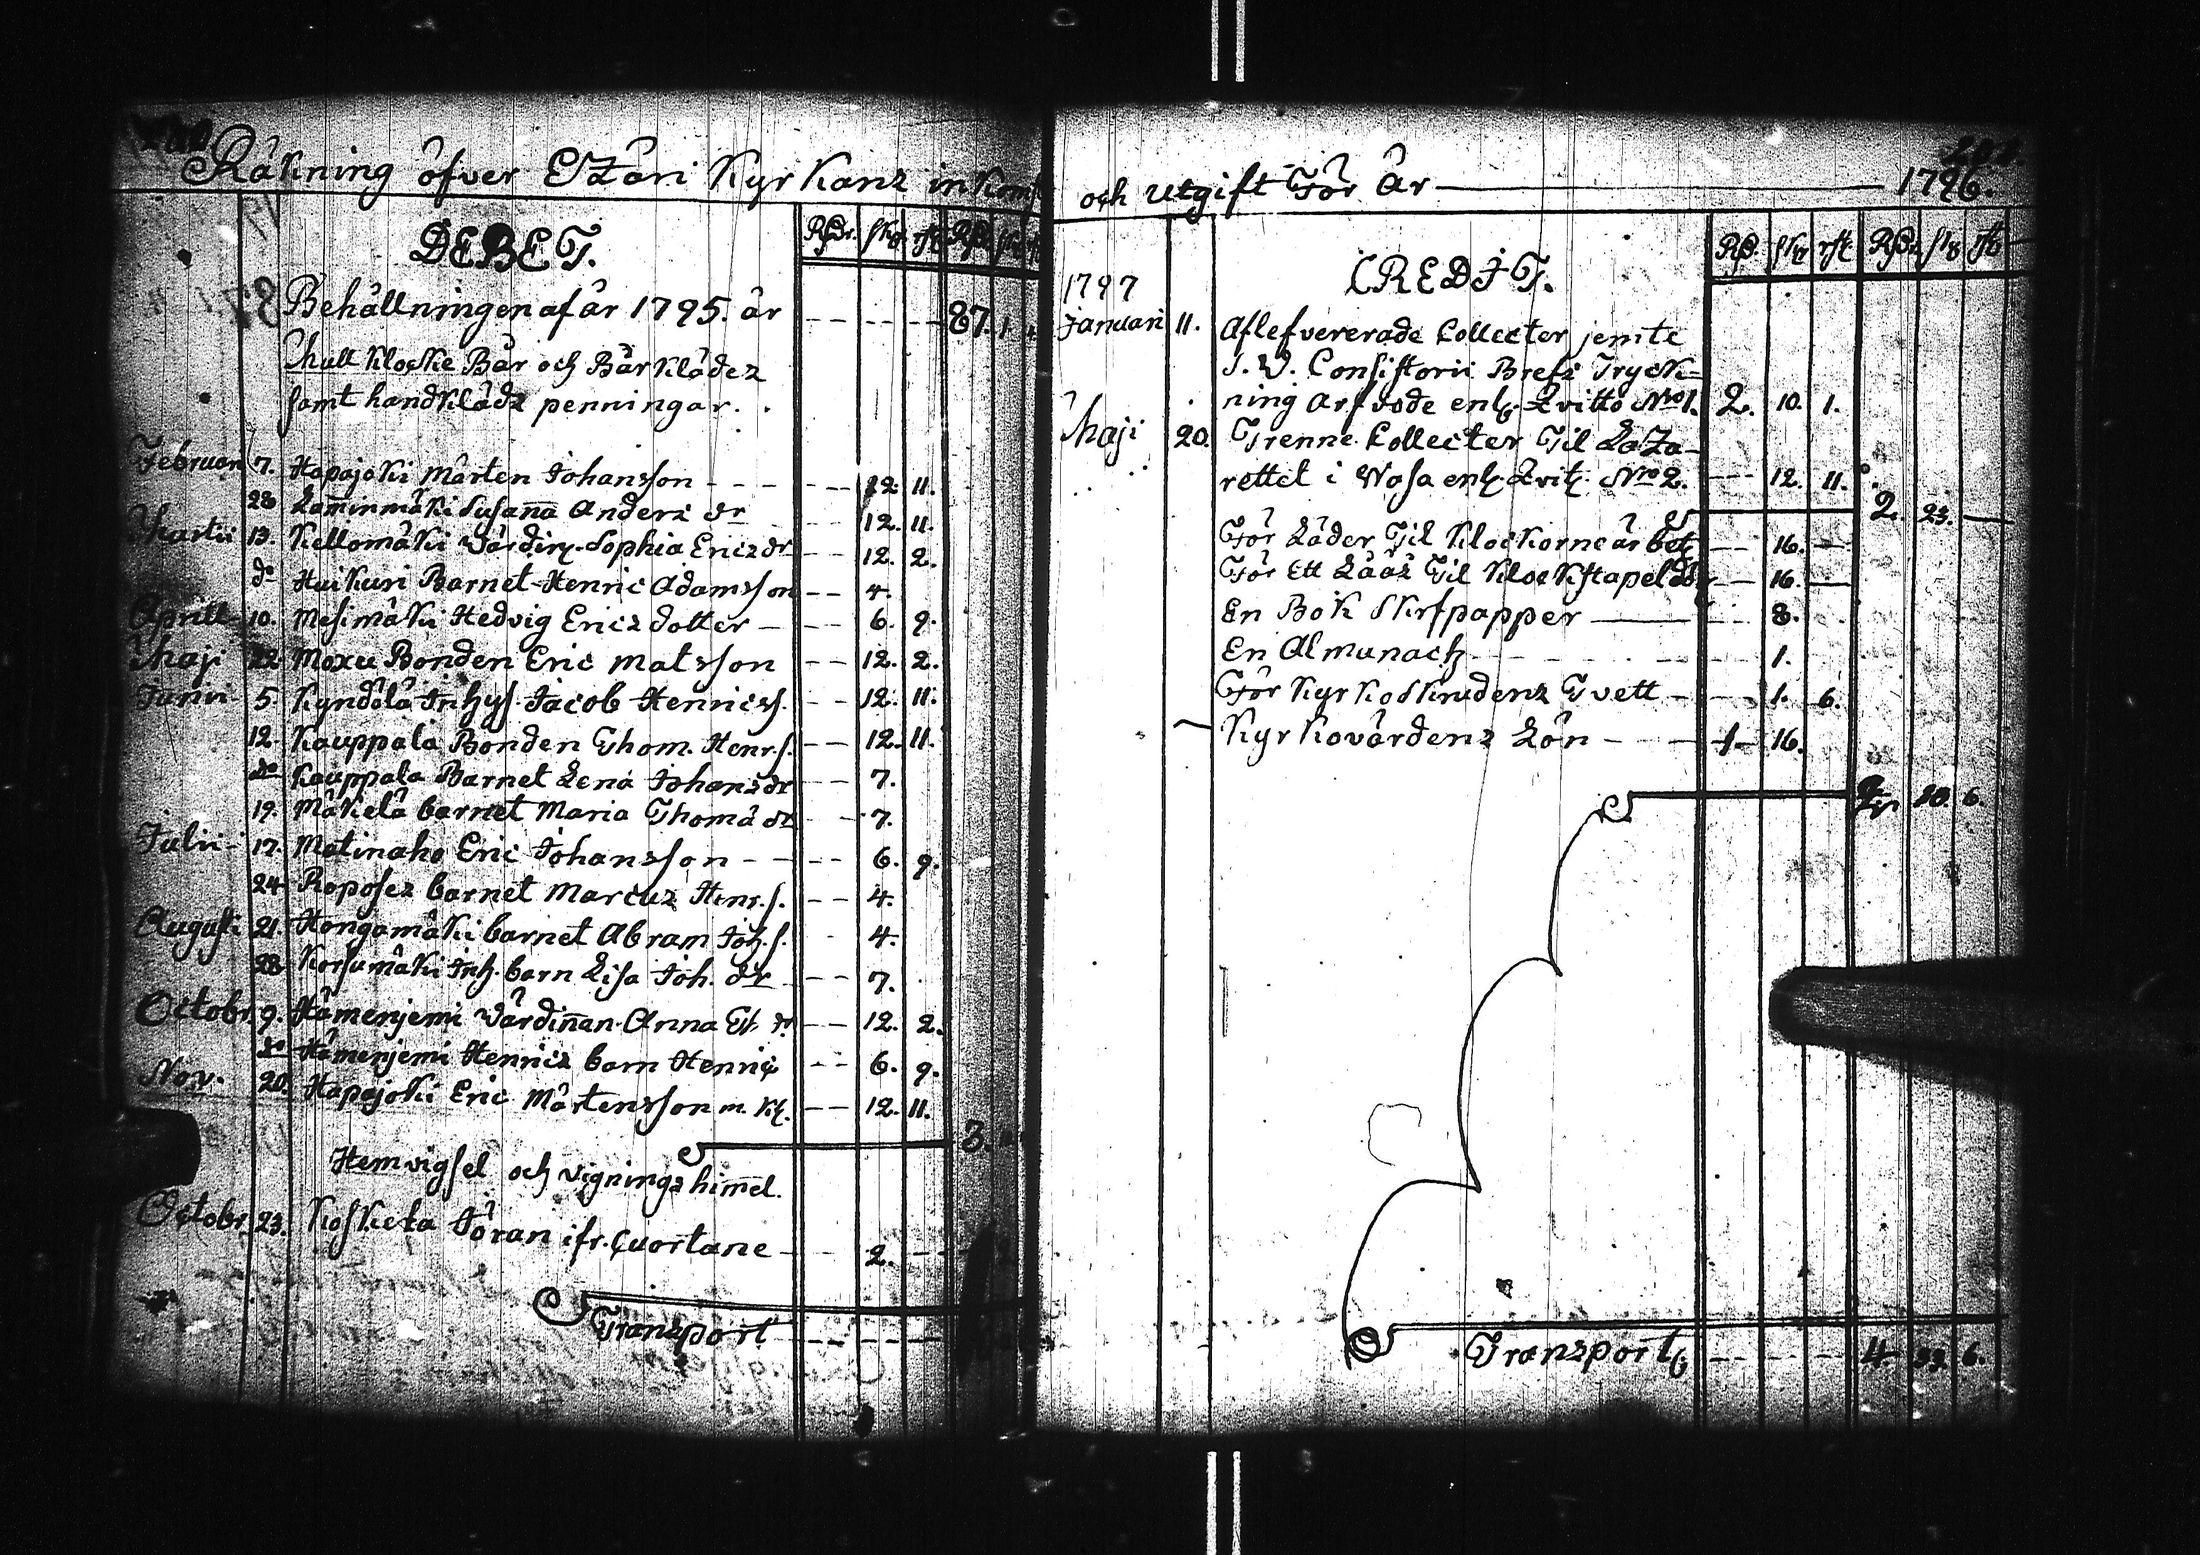 Räkning öfver Etzäri Kyrkans inkomst
DEBET.
RSdr. skg. rst. RSdr. sk.
Behållningen af år 1795. är - - - - 87. 1.
Mull klocke Bår och Bårklädes
samt handkläds penningar.
Februari 7. Hapojoki Mårten Johansson - - - 12. 11.
28 Lam̄inmäki Susan̄a Anders dr 12. 11.
Martii 13. Kellomäki Värdin. Sophia Erics dr - - 12. 2.
do Huikuri Barnet Henric Adamsson - - 4.
Aprill 10. Mesimäki Hedvig Erics dotter - - - 6. 9.
Maji 22 Moxu Bonden Eric Matsson - - 12. 2.
Junii 5. Kyndölä Inhys. Jacob Henricss. - - 12. 11.
12. Kauppala Bonden Thom. Henr.s. - - 12. 11.
do Kauppala Barnet Lena Johans dr - - 7.
19. Mäkelä barnet Maria Thomä dr - - 7.
Julii 17. Matinaho Eric Johansson - - - 6. 9.
24 Roposes barnet Marcus Henr.s. - - 4.
Augusti 21. Hongamäki barnet Abram Joh.s. - 4.
28 Korsumäki Inh. barn Lisa Joh. dr - - 7.
Octobr. 9. Hämenjemi Värdin̄an Anna dr. - - 12. 2.
do Hämenjemi Henrics barn Henric - - 6. 9.
Nov. 20. Hapojoki Eric Mårtensson m. kl. - - 12. 11.
3.
Hemvigsel och vignings him̄el.
Octobr. 23. Koskela Jöran ifr. Quortane - - 2. - -
Transport - - - -
och Utgift För År 1796.
CREDIT.
RSd. skg rst. RSdr. sk rst
1797
Januari 11. Aflefvererade Collecter jemte
S. V. Consistorii Brefs Tryck-
ning arfvode enl. Qvitto No 1. 2. 10. 1.
Maji 20. Trenne Collecter Til Laza-
rettet i Wasa enl. Qvit. No 2. - - 12. 11.
2. 23. —
För Läder Til Klockorne är bet. - - 16. —
För Ett Låås Til Klockstapel - - 16. —
En Bok Skrfpapper - - 8.
En Almanach - - - - 1.
För Kyrkoskrudens Tvett - - - 1. 6.
Kyrkovärdens Lön - - - 1. 16.
2. 10. 6.
Transport. - - - - 4 33. 6.